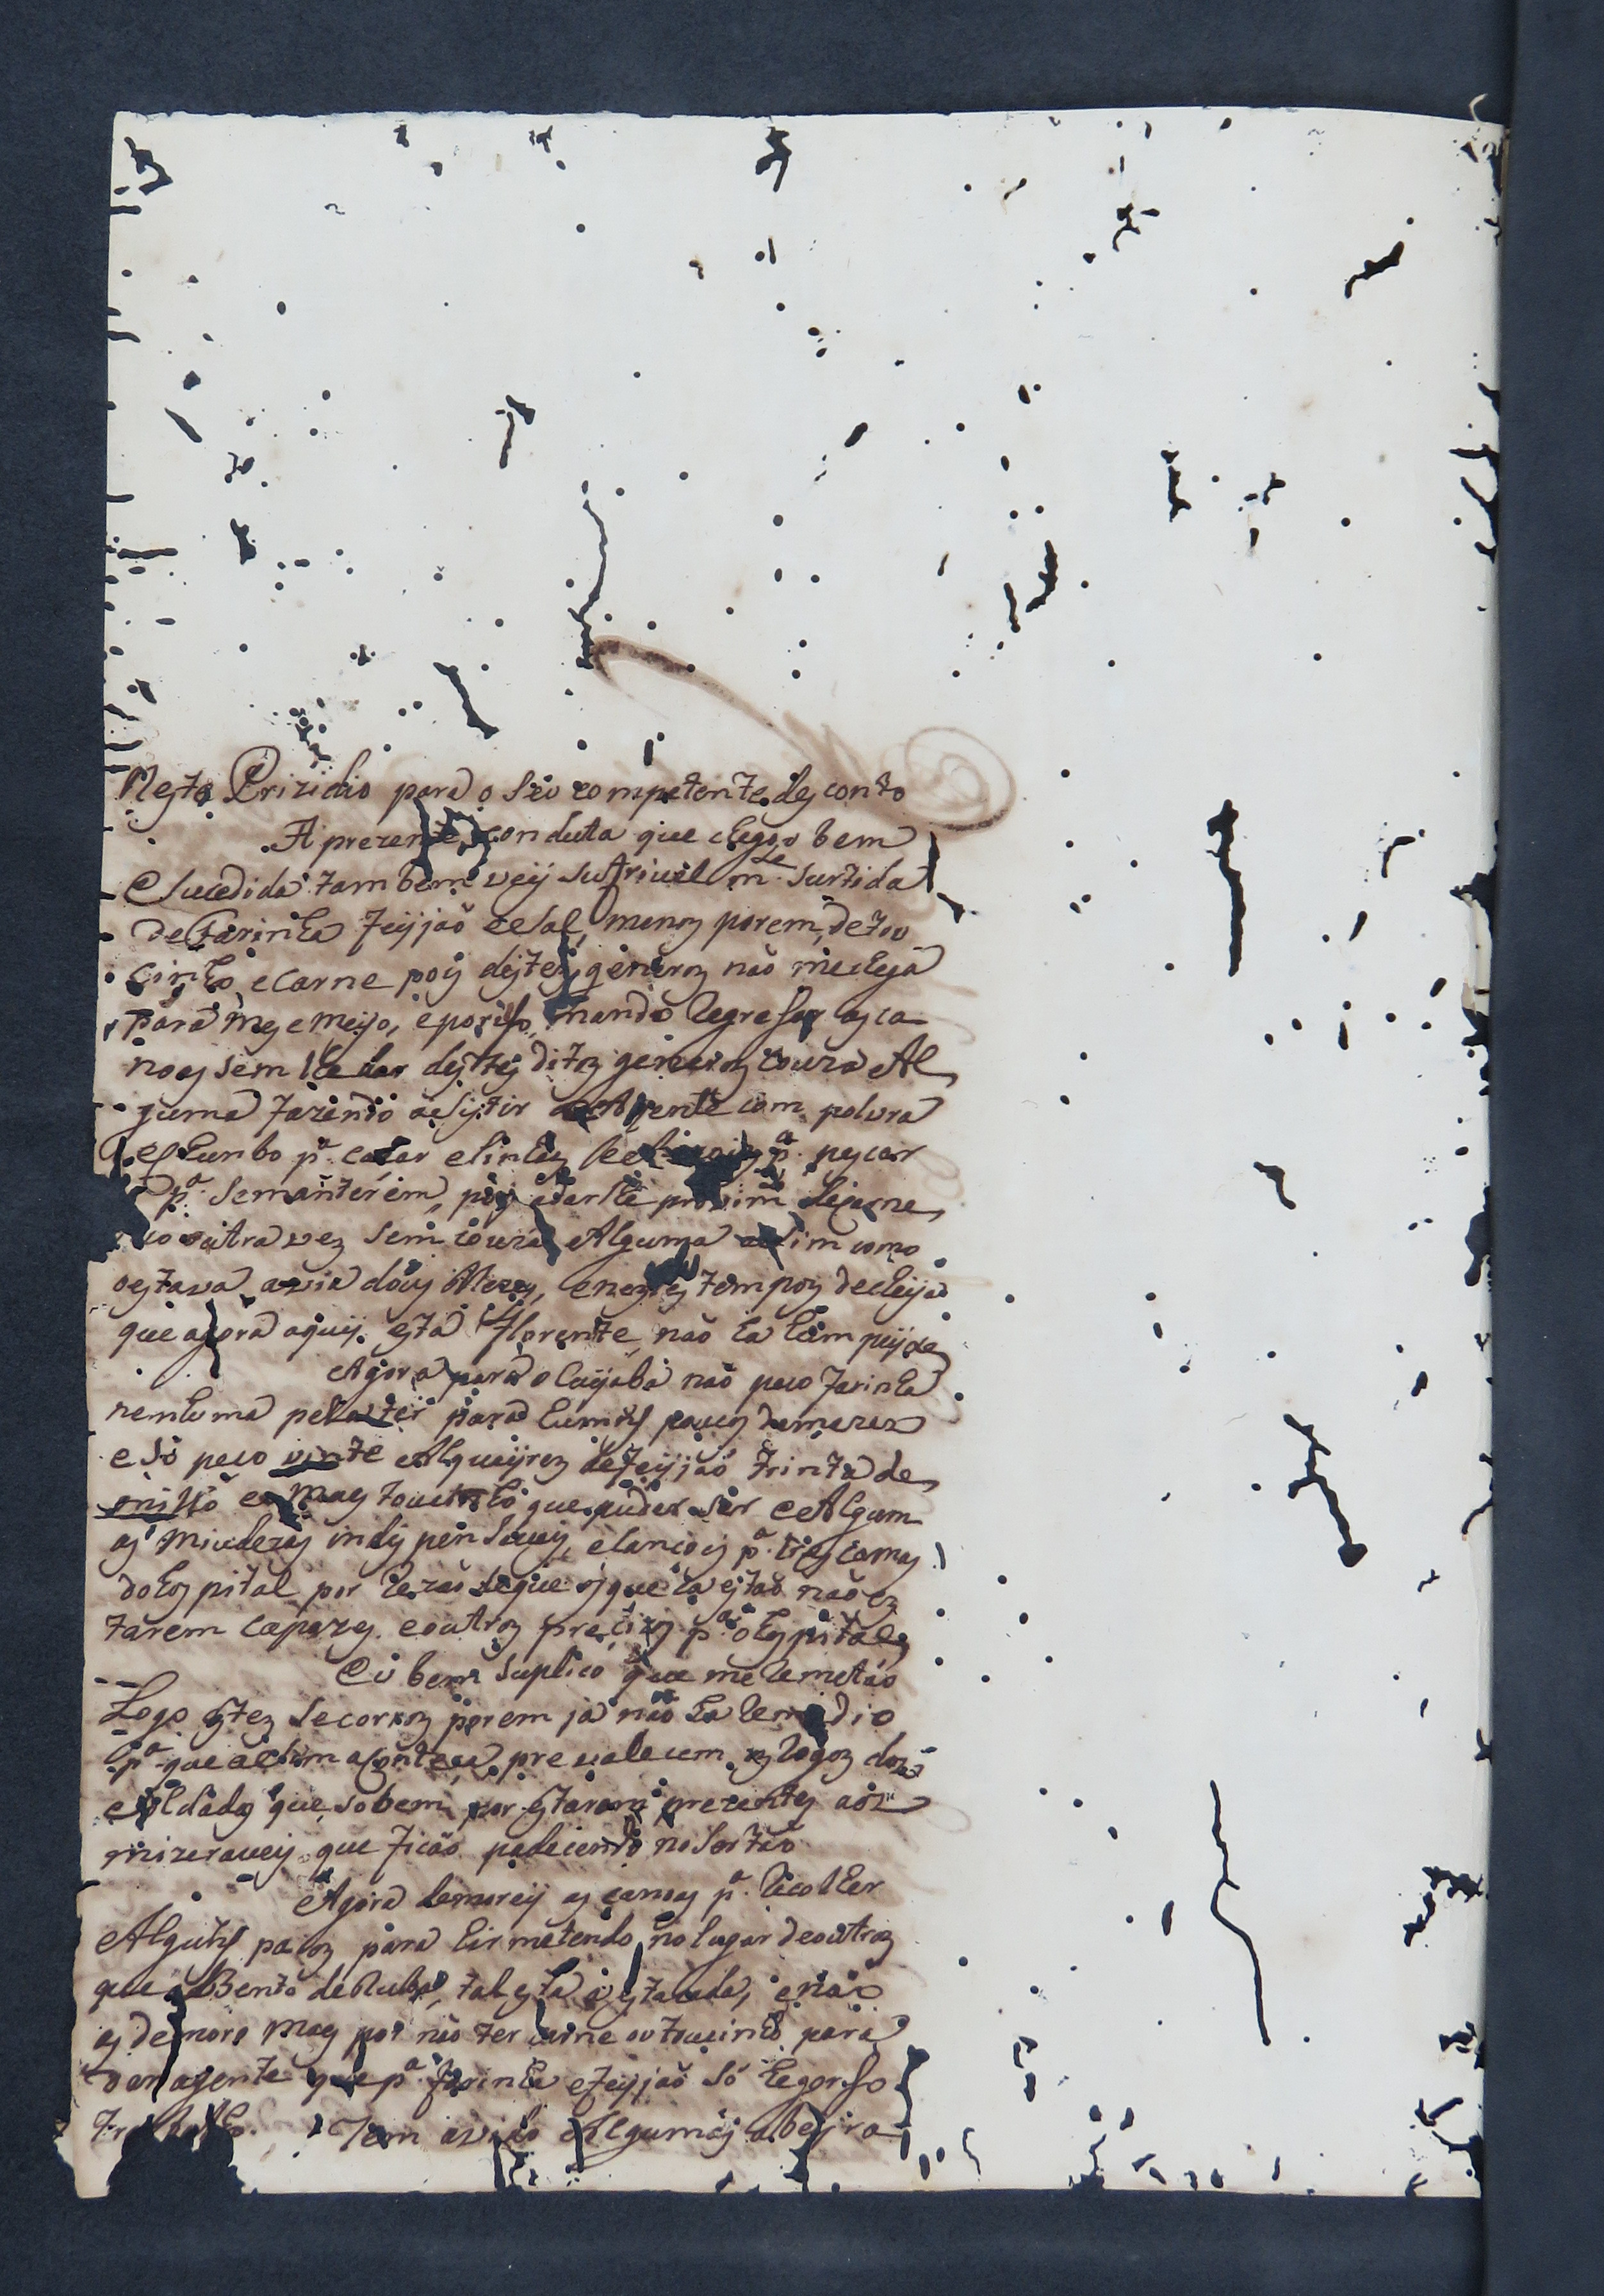 Neste Prizidio para o seo competente desconto
A prezente conduta que chegou bem
e sucedida tambem veyj sufrivel m.te surtida
de farinha feyjaõ e sal, menos porem, de tou
cinho, e carne pois destes generos naõ me chega
para mes e meijo, e por isso mando regresar as ca
noas sem lhe dar destes ditos generos couza Al
guma fazendo asistir a gente com polvra
e chumbo p.a casar e linhas p.a pescar
p.a se manterem, pois a darlhe provim.to
outra vez sem couza Alguma asim como
estava avia dous Mezes, e nestes tempos de cheya
que agora aquij está florente, naõ ha hum peijxe
Agora para o Cuyabá naõ peso farinha
nenhuma pela ter para huns poucos de mezes
e só peso vinte Alqueijres de feyjaõ trinta de
milho e o mais toucinho que puder ser e Algum
as miudezas indispensaveis, e lansois p.a tres camas
do Hospital por rezaõ de que os que la estaõ naõ es
tarem capazes e outros precizos p.a o Hospital
Eu bem suplico que me remetaõ
Logo estes secorros porem já naõ ha remedio
p.a que asim aconteça, prevalecem os rogos dos
soldados que sobem por estarem prezentes aos
mizeraveis que ficaõ padecendo no Sertaõ
Agora demorey as canoas p.a recolher
Alguns paos para hir metendo no lugar de outros
que Bento de tal esta estacada, e naõ
as demoro mais por naõ ter carne ou toucinho para
dar a gente que p.a farinha e feyjaõ só
Trabalho. Tem avido Algumas a beijra